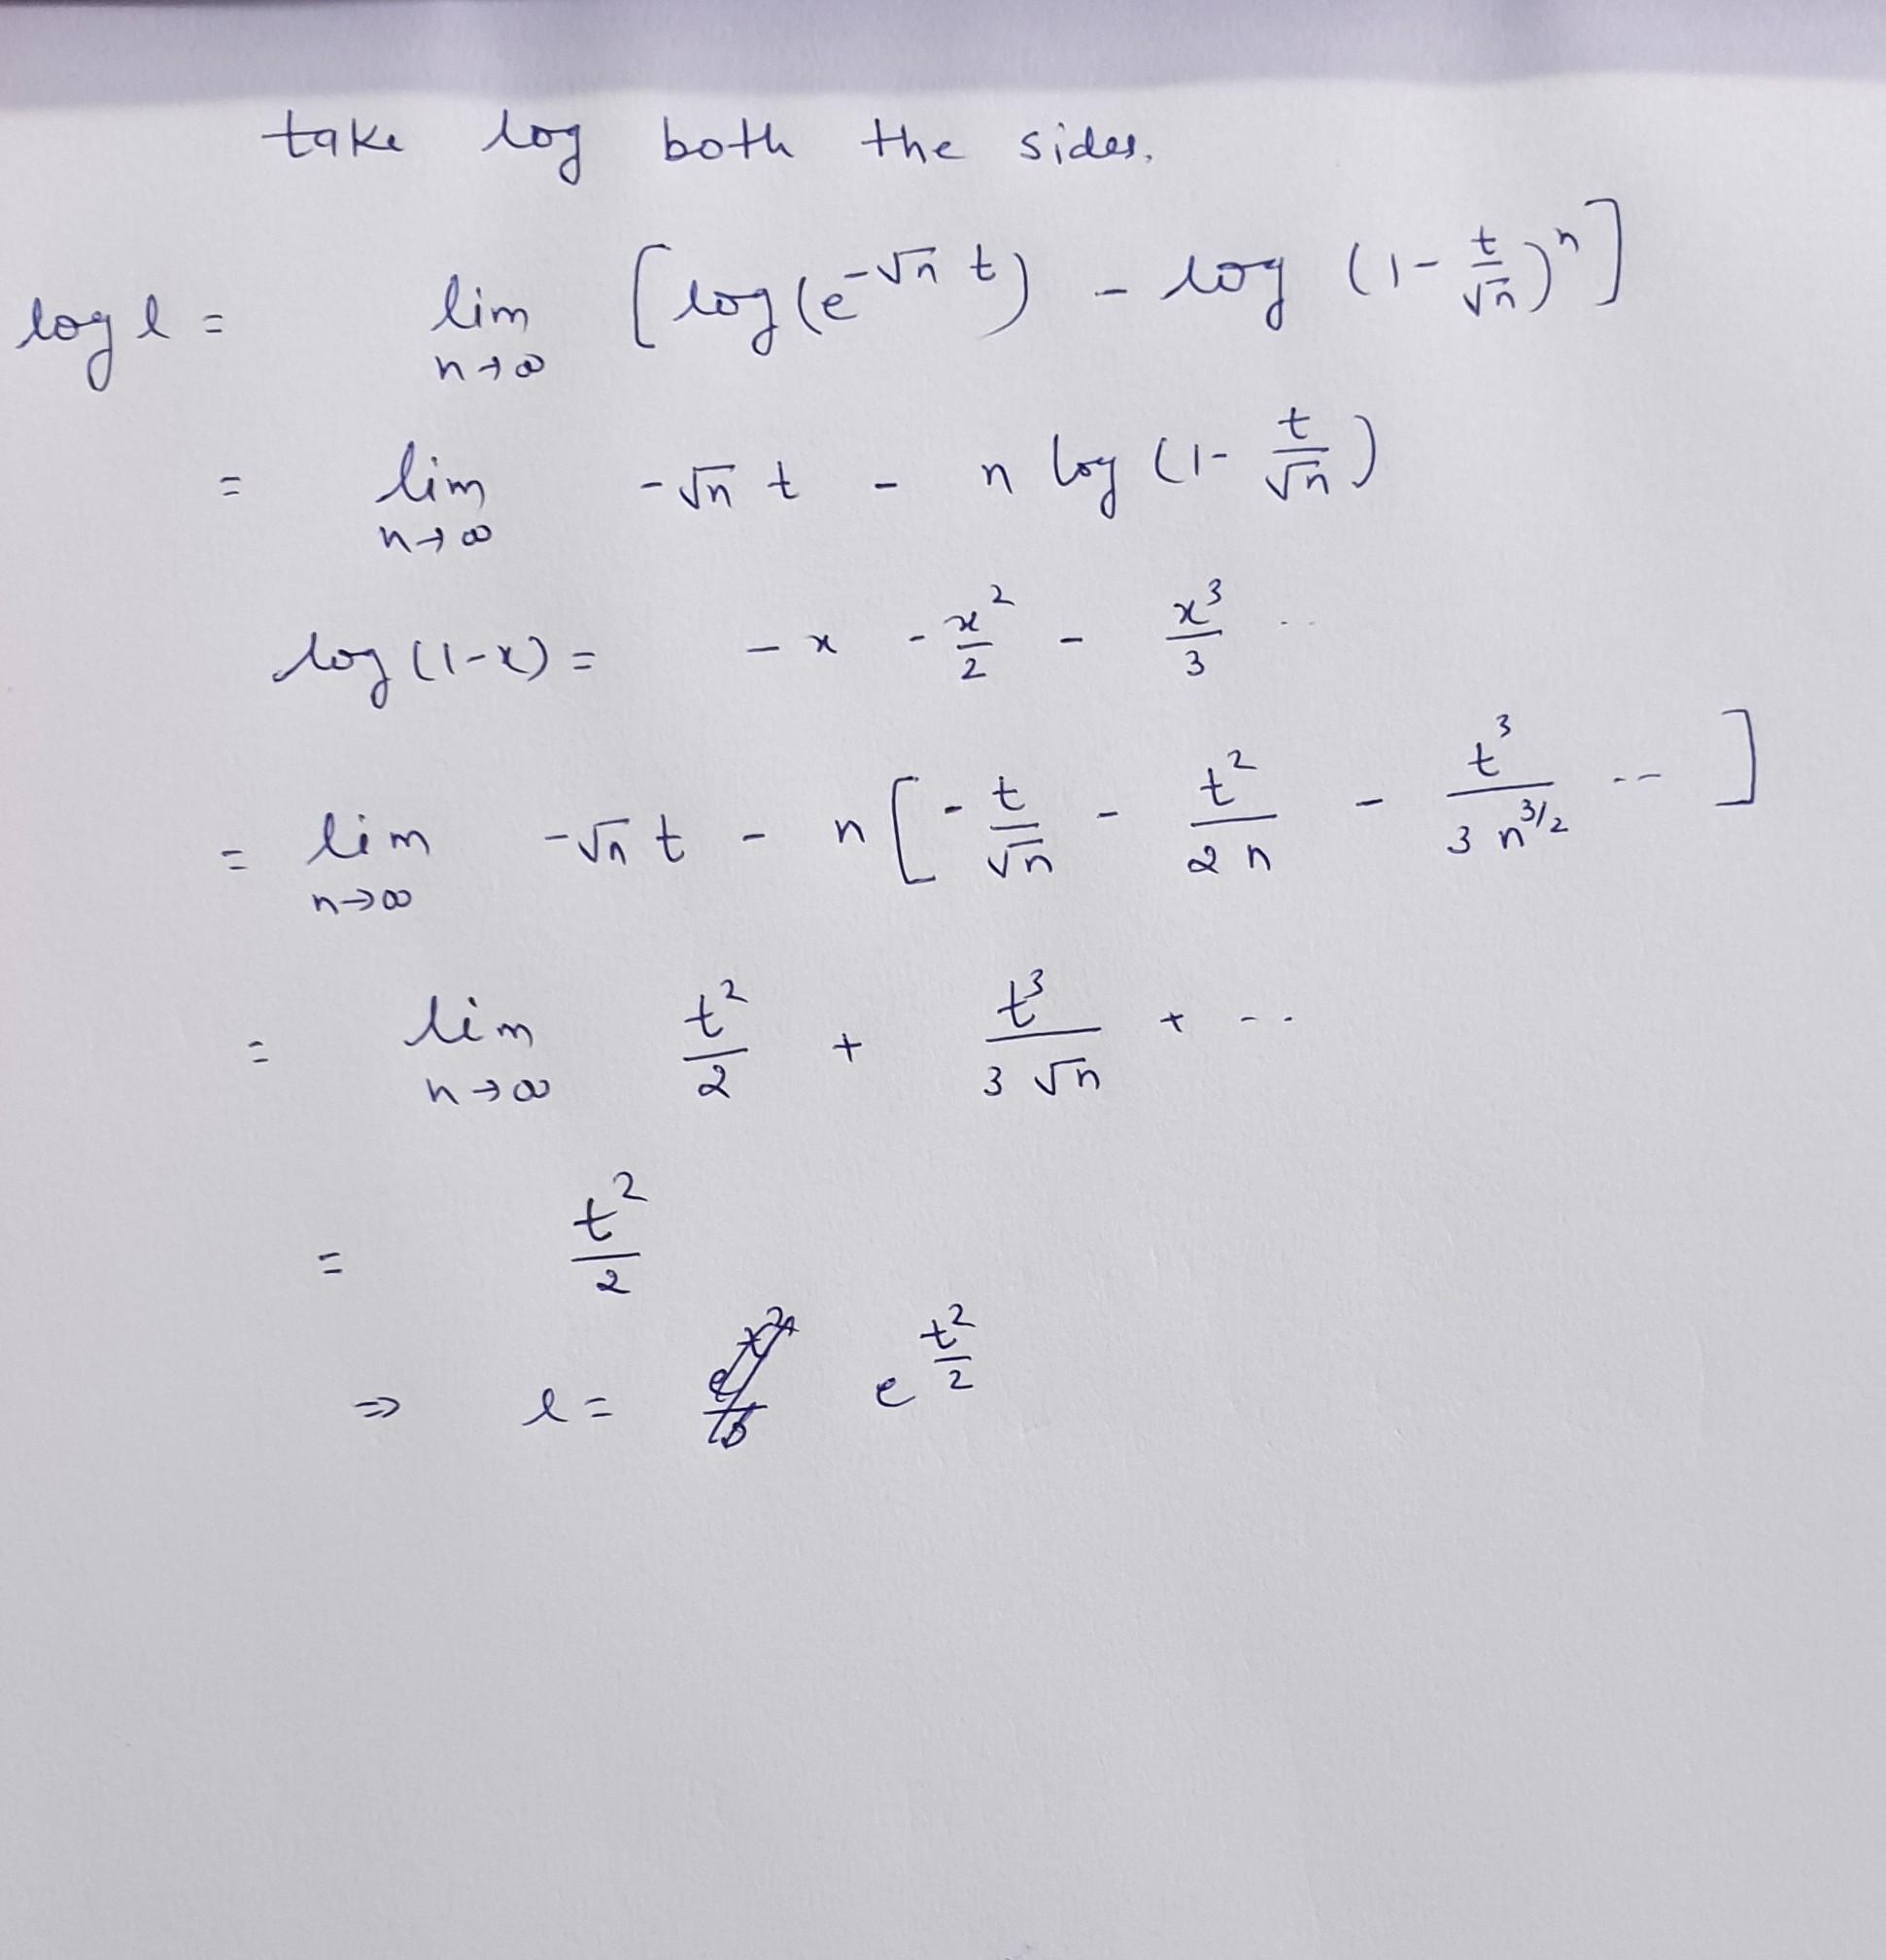 take log both the sides.
log l = lim n→∞ [log(e^{-√n t}) - log (1- t/√n)^n]
= lim n→∞ -√n t - n log (1- t/√n)
log (1-x) = - x - x^2/2 - x^3/3 ..
= lim n→∞ -√n t - n [- t/√n - t^2/2n - t^3/3n^{3/2} -- ]
= lim n→∞ t^2/2 + t^3/3√n + - -·
= t^2/2
⇒ l = e^{t^2/2}